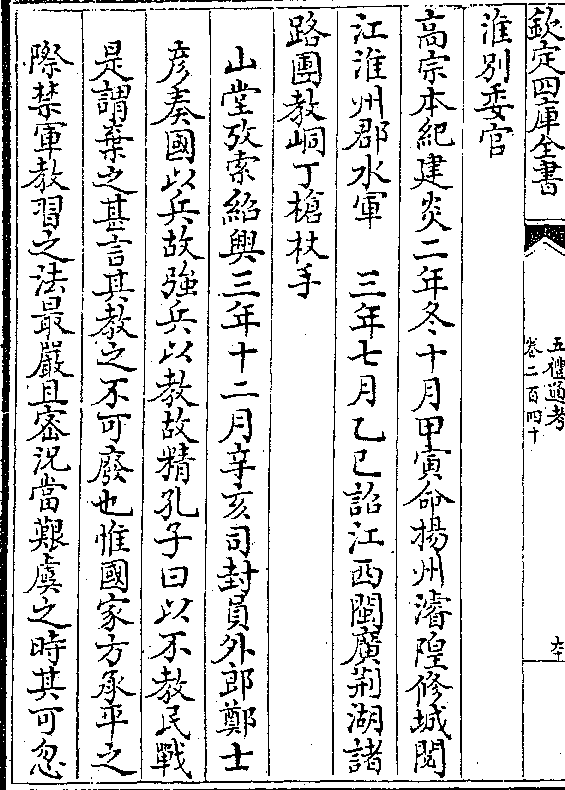 欽定四庫全書
五禮通考
卷二百四十
六十
淮別委官
高宗本紀建炎二年冬十月甲寅命揚州濬隍修城閲
江淮州郡水軍　三年七月乙巳詔江西閩廣荆湖諸
路團教峒丁槍杖手
山堂攷索紹興三年十二月辛亥司封員外郎鄭士
彦奏國以兵故強兵以教故精孔子曰以不教民戰
是謂棄之甚言其教之不可廢也惟國家方承平之
際禁軍教習之法最嚴且密況當艱虞之時其可忽